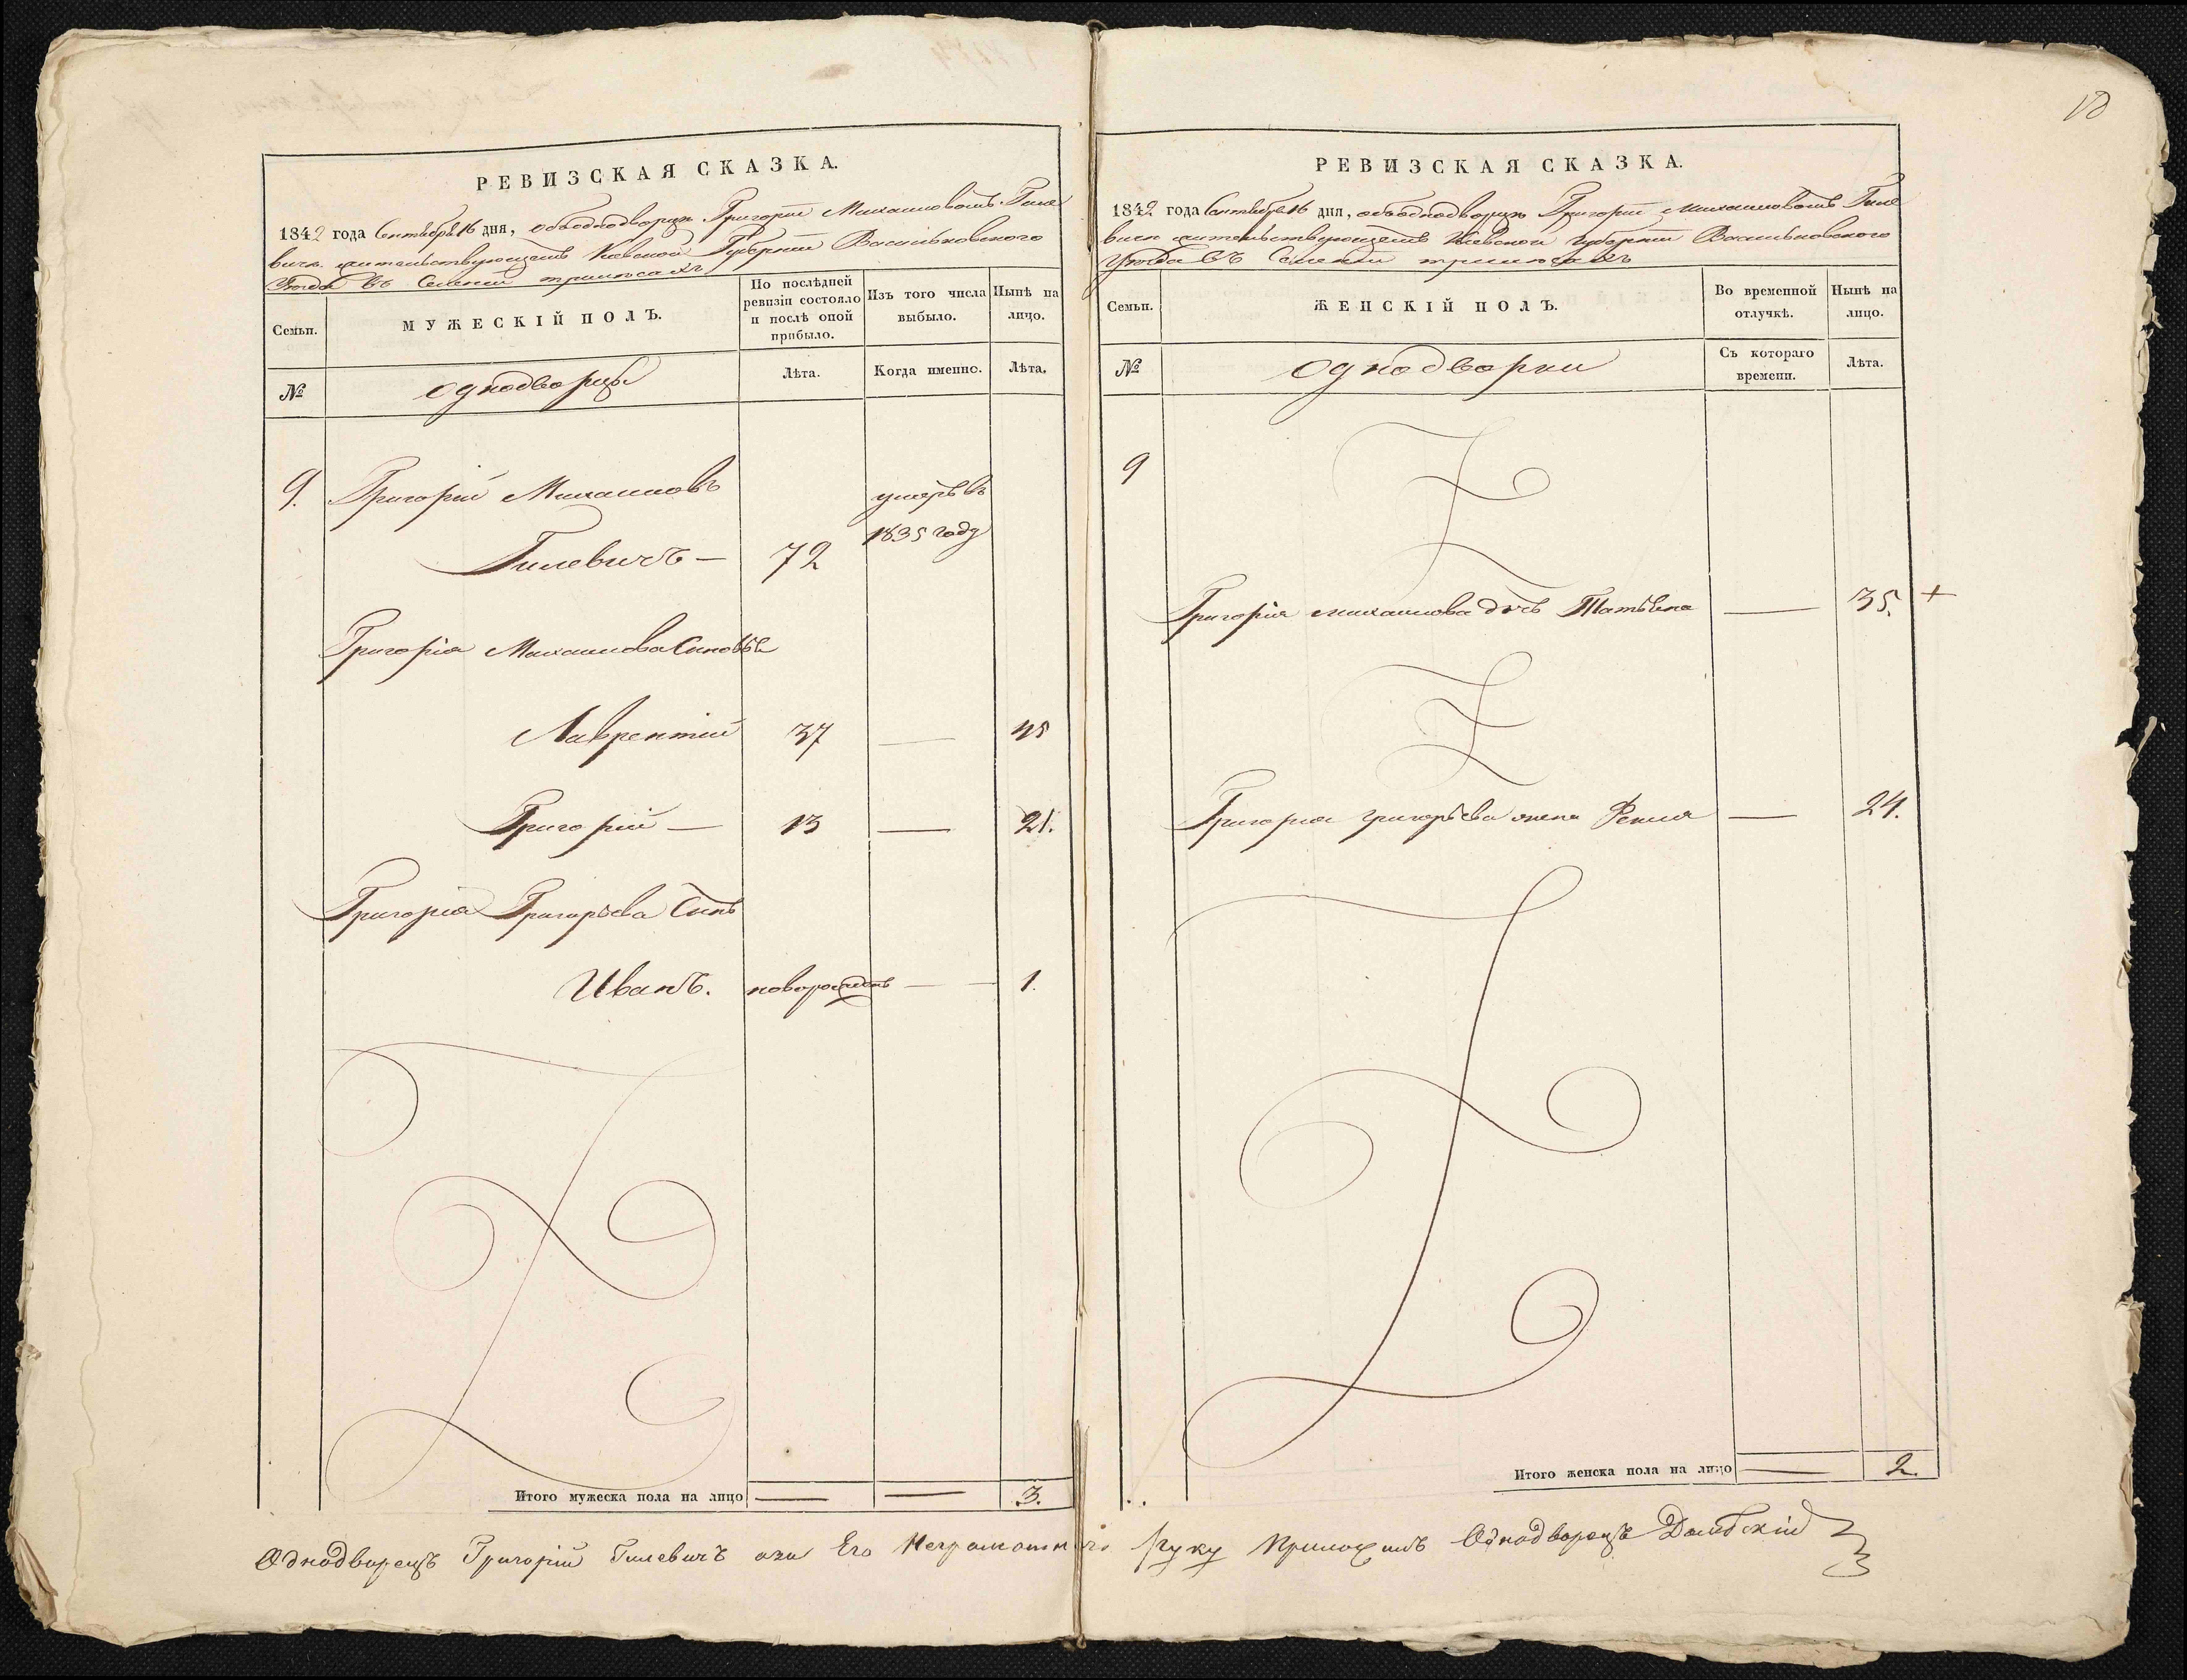 10
РЕВИЗСКАЯ СКАЗКА.
1842 года Сентября 16 дня, объ однодворцѣ Григоріи Михаиловомъ Гиле
вичѣ жительствующемъ Кіевской Губерніи Васильковскаго
Уѣзда въ Селеніи Трилѣсахъ
Семьи.
МУЖЕСКІЙ ПОЛЪ.
По послѣдней
ревизіи состояло
и послѣ оной
прибыло.
Изъ того числа
выбыло.
Нынѣ на
лицо.
№
Однодворцы
Лѣта.
Когда именно.
Лѣта.
9. Григорій Михаиловъ умеръ въ
Гилевичъ — 72 1835 году
Григорія Михаилова Сыновья
Лаврентій 37 — 45
Григорій — 13 — 21.
Григорія Григорьева Сынъ
Иванъ. новорожденъ — 1.
Итого мужеска пола на лицо — — 3.
РЕВИЗСКАЯ СКАЗКА.
1842 года Сентября 16 дня, объ однодворцѣ Григоріи Михаиловомъ Гиле
вичѣ жительствующемъ Кіевской Губерніи Васильковского
Уѣзда въ Селеніи Трилѣсахъ
Семьи.
ЖЕНСКІЙ ПОЛЪ.
Во временной
отлучкѣ.
Нынѣ на
лицо.
№
Однодворки
Съ котораго
времени.
Лѣта.
9
Григорія Михаилова дочь Татьяна — 35. +
Григорія Григорьева жена Фекла — 24.
Итого женска пола на лицо — 2.
Однодворецъ Григорій Гилевичъ а за Его Неграмотнаго руку Приложилъ Однодворецъ Домбскій